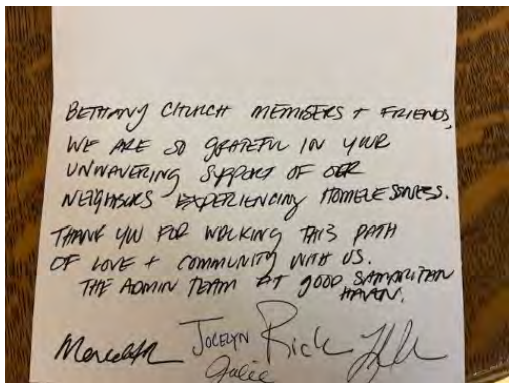 BETHANY CHURCH MEMBERS + FRIENDS,
WE ARE SO GRATEFUL IN YOUR
UNWAVERING SUPPORT OF OUR
NEIGHBORS EXPERIENCING HOMELESSNESS.
THANK YOU FOR WALKING THIS PATH
OF LOVE + COMMUNITY WITH US.
THE ADMIN TEAM AT GOOD SAMARITAN
HAVEN.
Meredith JOCELYN Rick
Julie